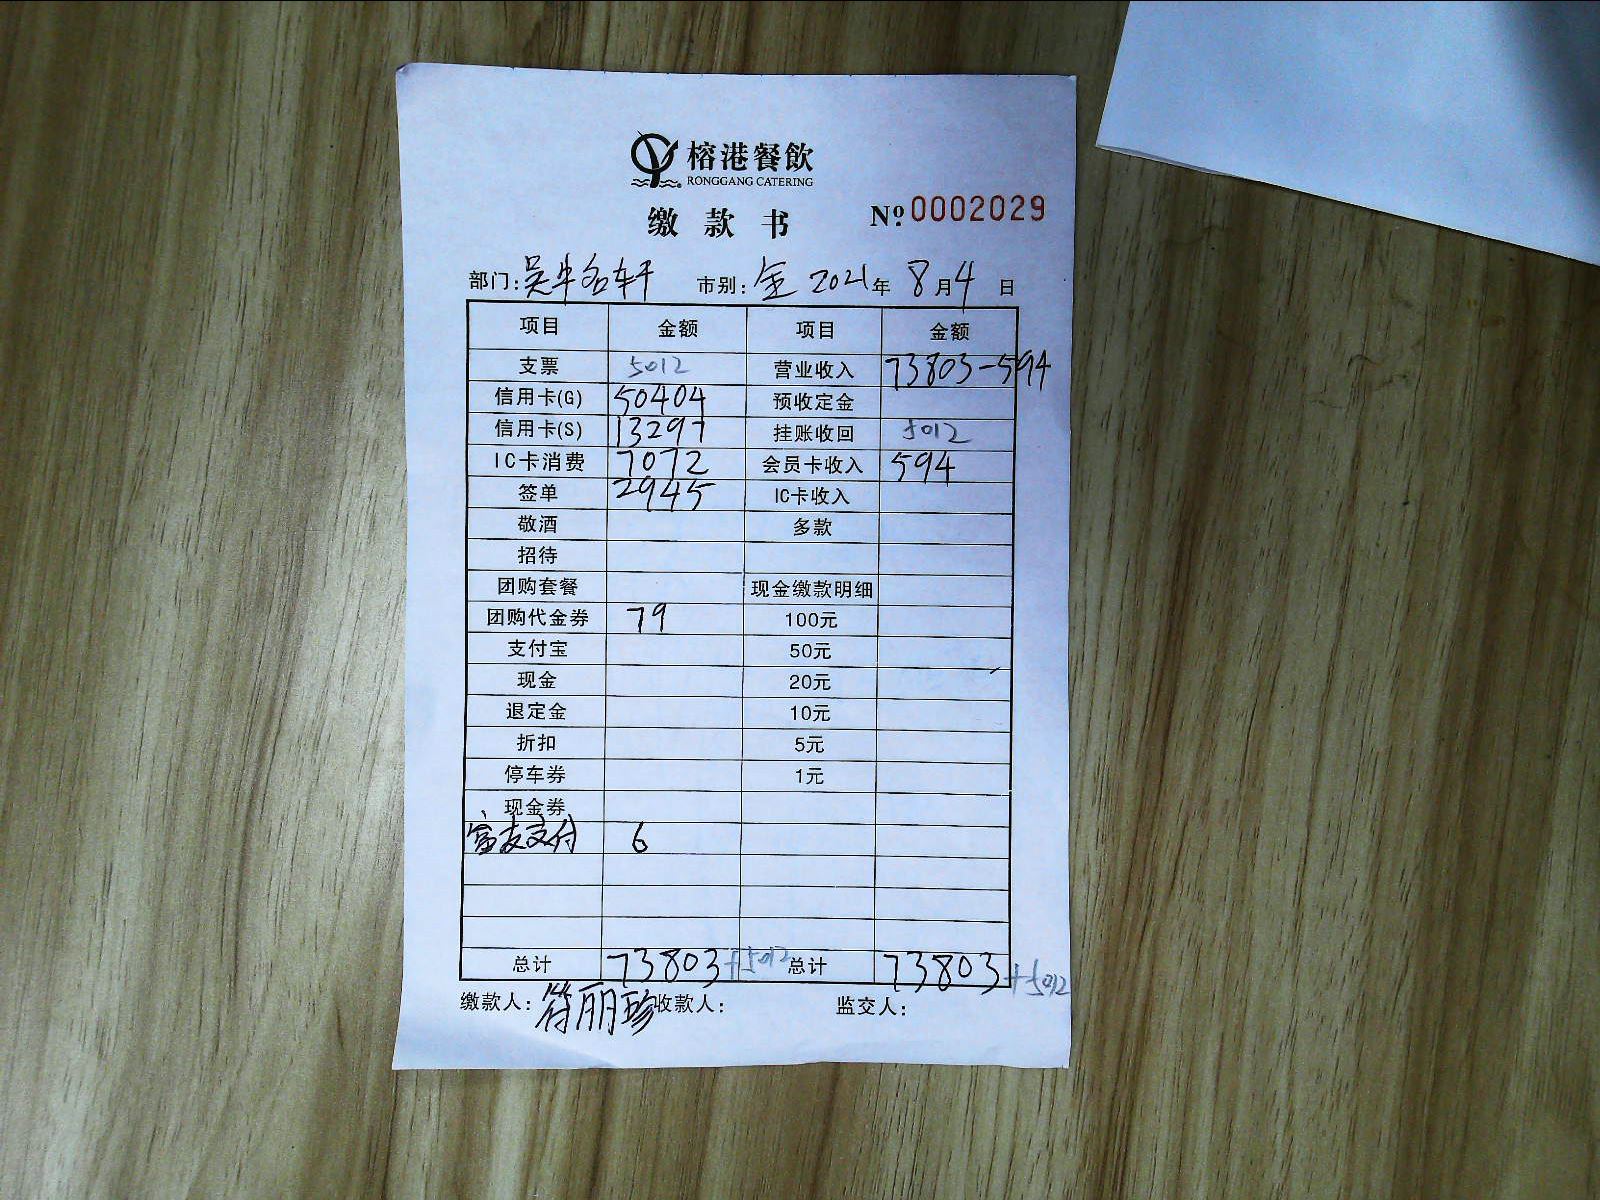 榕港餐飲
RONGGANG CATERING
缴款书 Nº 0002029
部门: 吴中名轩 市别: 全 2021年 8月4日
项目 金额 项目 金额
支票 5012 营业收入 73803-594
信用卡(G) 50404 预收定金
信用卡(S) 13297 挂账收回 5012
IC卡消费 7072 会员卡收入 594
签单 2945 IC卡收入
敬酒 多款
招待
团购套餐 现金缴款明细
团购代金券 79 100元
支付宝 50元
现金 20元
退定金 10元
折扣 5元
停车券 1元
现金券
富友支付 6
总计 73803+5012 总计 73803+5012
缴款人: 符丽珍 收款人: 监交人: